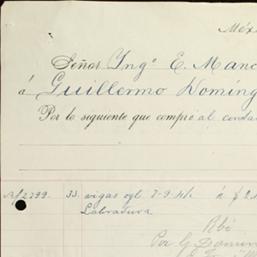 Méx
Señor Ingº E. Manc
á Guillermo Doming
Por lo siguiente que compré al conta
A/2799. 33. vigas oyl 7-9 4/c á $ 2
Labradura
Rbí
Por G. Domin